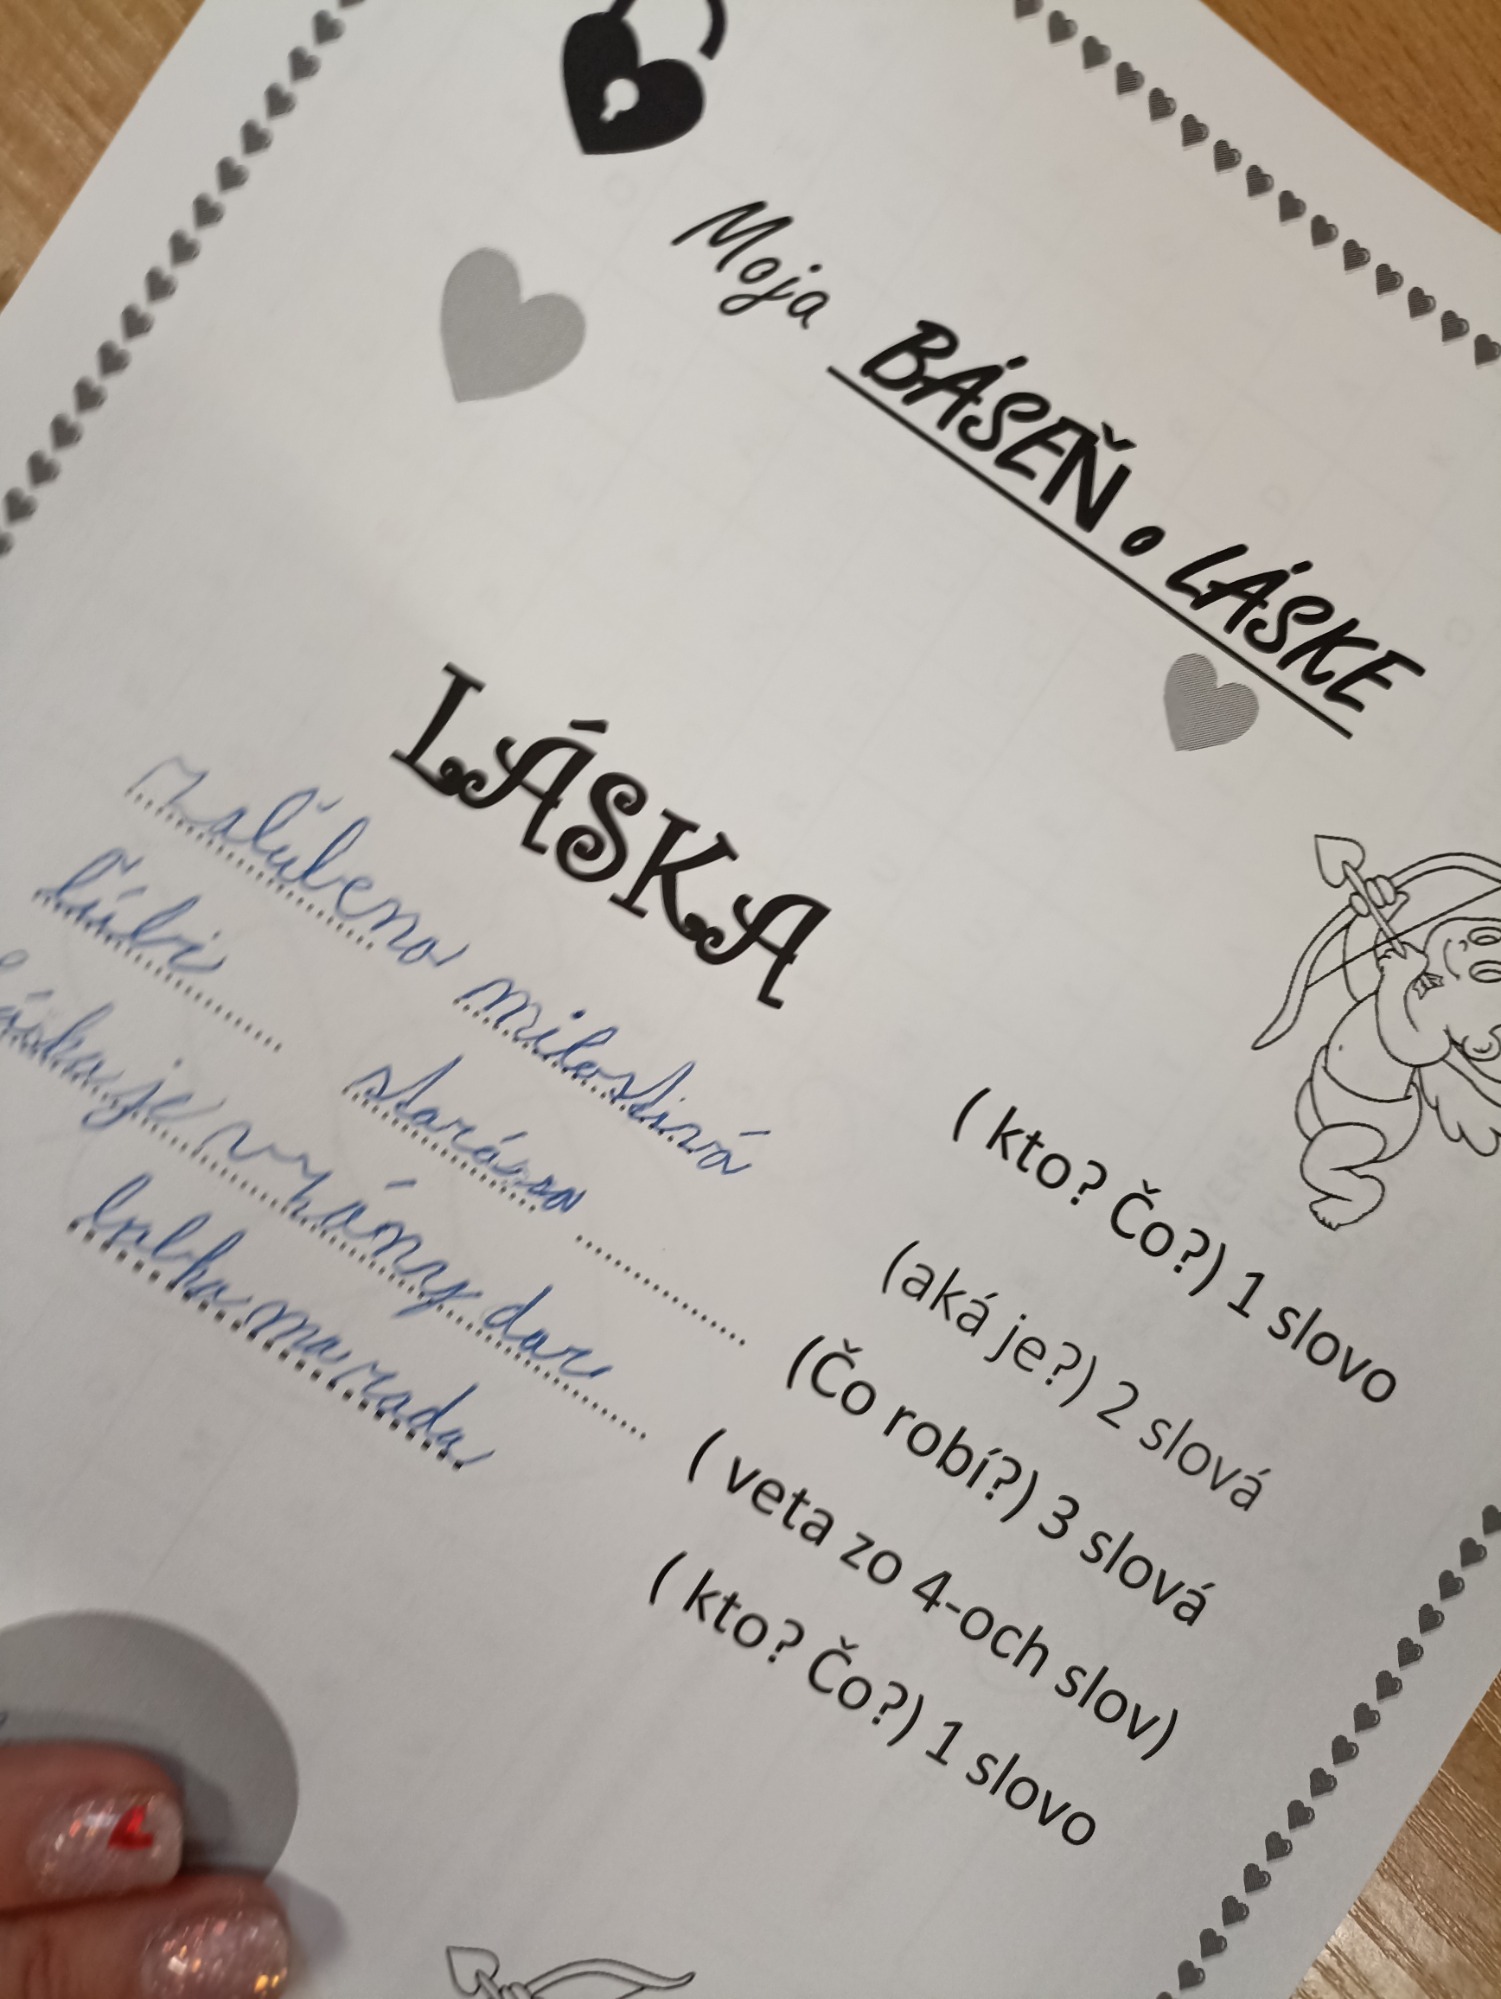 Moja BÁSEŇ o LÁSKE
LÁSKA
( kto? Čo?) 1 slovo
zaľúbena milostivá
(aká je?) 2 slová
ľúbi
stará sa
(Čo robí?) 3 slová
láska je vzácny dar
( veta zo 4-och slov)
( kto? Čo?) 1 slovo